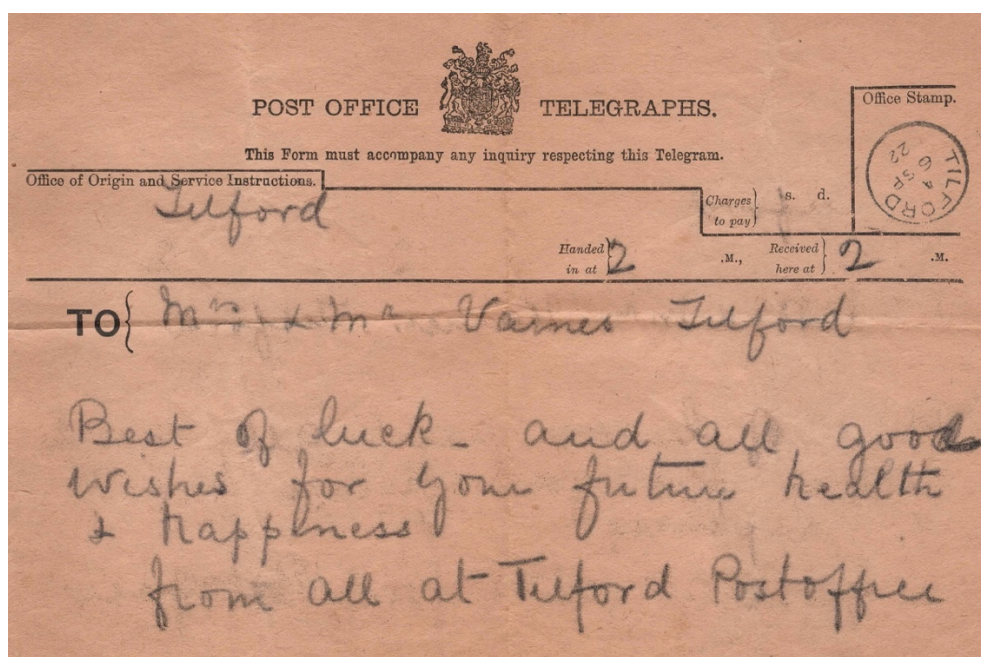 POST OFFICE TELEGRAPHS.
This Form must accompany any inquiry respecting this Telegram.
Office Stamp.
TILFORD
6 SP
22
Office of Origin and Service Instructions.
Tilford
Charges to pay } s. d.
Handed in at } 2 .M., Received here at } 2 .M.
TO { & Varnes Tilford
Best of luck - and all good
wishes for your future health
& happiness
from all at Tilford Postoffice